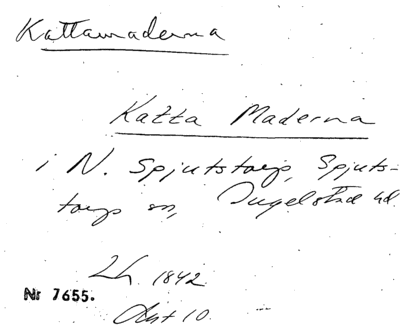 Kattamaderna
Katta Maderna
i N. Spjutstorp, Spjuts-
torps sn, Ingelstad hd.
Lh. 1842
Nr 7655.
Akt 10